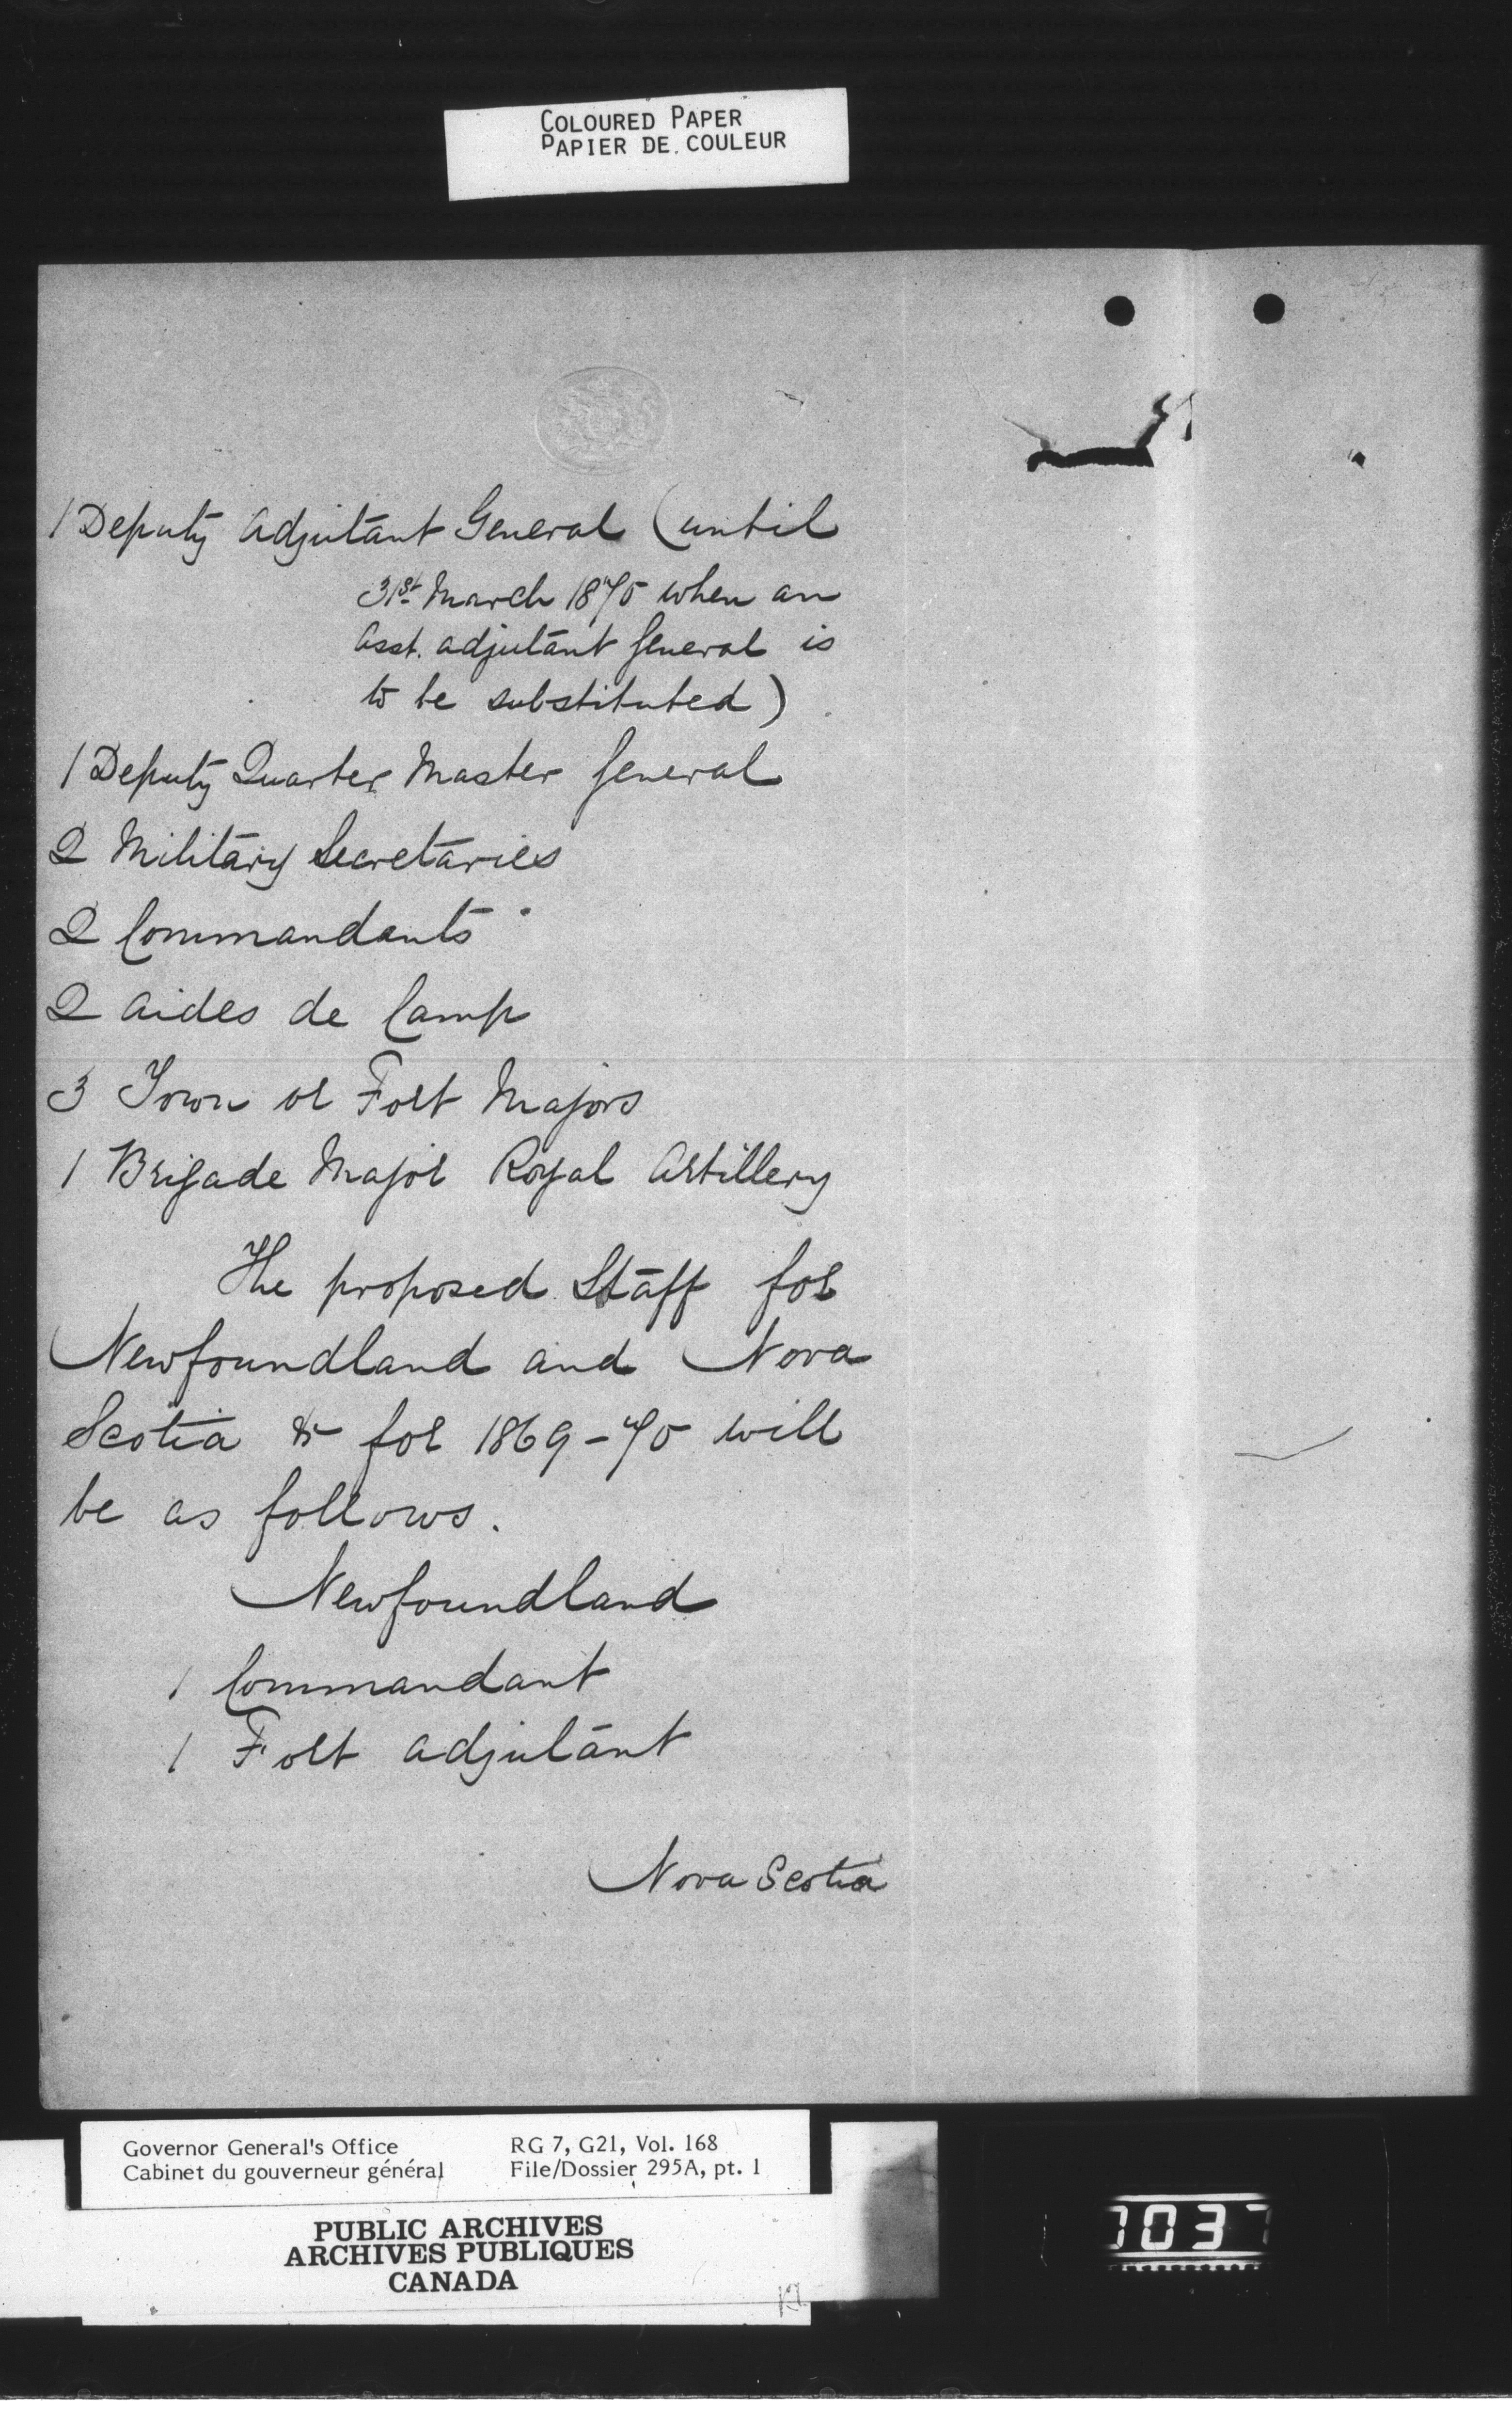 COLOURED PAPER
PAPIER DE COULEUR
1 Deputy Adjutant General (until
31st March 1870 when an
Asst. Adjutant General is
to be substituted)
1 Deputy Quarter Master General
2 Military Secretaries
2 Commandants
2 Aides de Camp
3 Town or Fort Majors
1 Brigade Major Royal Artillery
The proposed Staff for
Newfoundland and Nova
Scotia &c for 1869-70 will
be as follows.
Newfoundland
1 Commandant
1 Fort Adjutant
Nova Scotia
Governor General's Office RG 7, G21, Vol. 168
Cabinet du gouverneur général File/Dossier 295A, pt. 1
PUBLIC ARCHIVES
ARCHIVES PUBLIQUES
CANADA